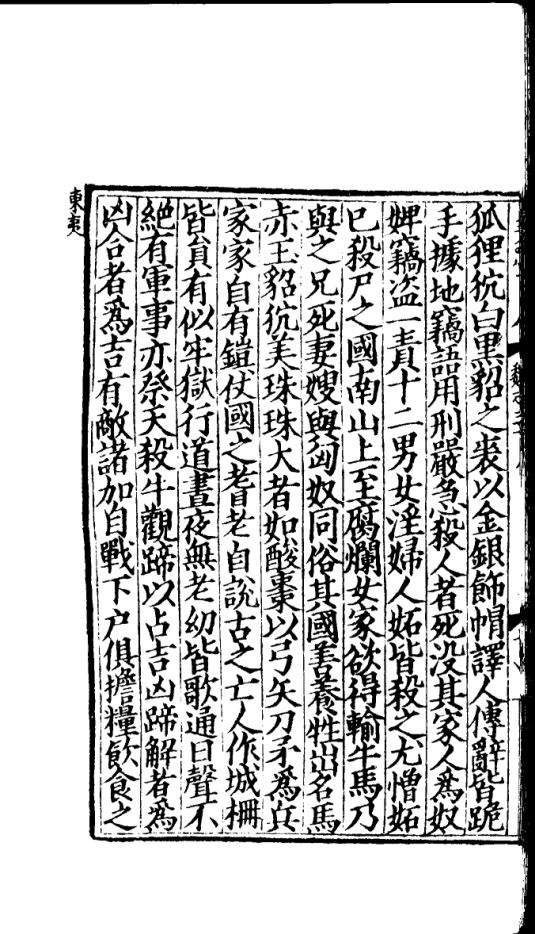 狐狸狖白黑貂之裘以金銀飾帽譯人傳辭皆跪
手據地竊語用刑嚴急殺人者死没其家人為奴
婢竊盗一責十二男女淫婦人妬皆殺之尤憎妬
已殺尸之國南山上至腐爛女家欲得輸牛馬乃
與之兄死妻嫂與匈奴同俗其國善養牲出名馬
赤玉貂狖美珠珠大者如酸棗以弓矢刀矛為兵
家家自有鎧仗國之耆老自說古之亡人作城柵
皆貟有似牢獄行道晝夜無老幼皆歌通日聲不
絶有軍事亦祭天殺牛觀蹄以占吉凶蹄解者為
凶合者爲吉有敵諸加自戰下户俱擔糧飲食之
東夷